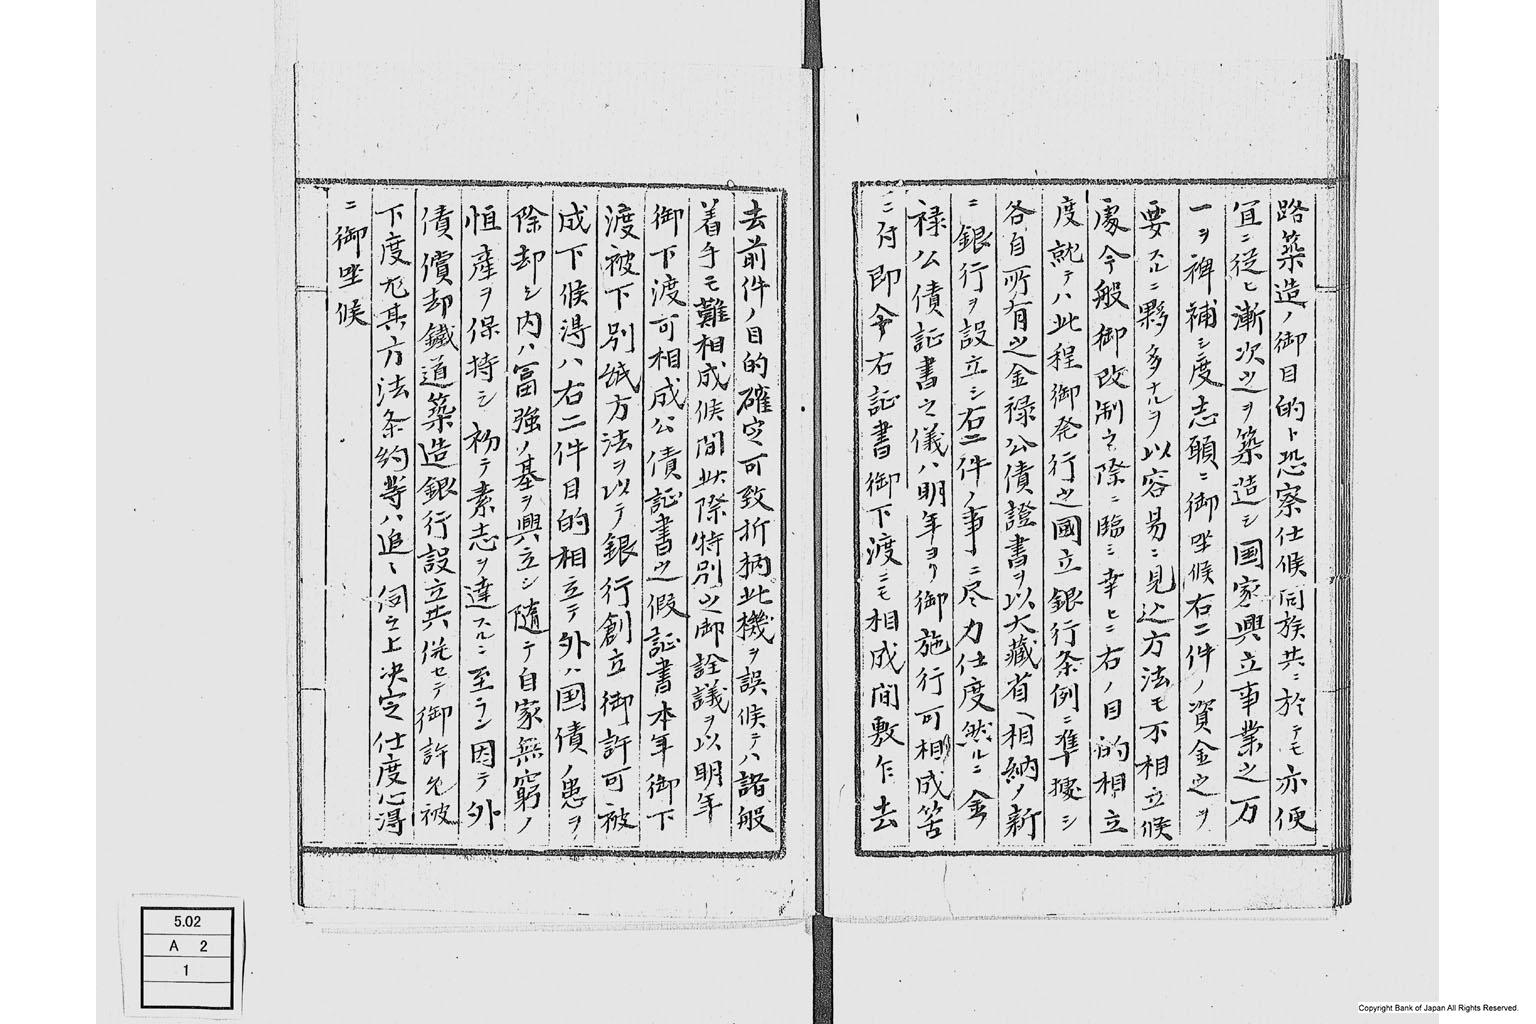 路築造ノ御目的ト恐察仕候同族共ニ於テモ亦便
宜ニ従ヒ漸次之ヲ築造シ国家興立事業之万
一ヲ裨補シ度志願ニ御坐候右二件ノ資金之ヲ
要スルニ夥多ナルヲ以容易ニ見込方法モ不相立候
處今般御改制之際ニ臨ミ幸ヒニ右ノ目的相立
度就テハ此程御発行之國立銀行条例ニ準據シ
各自所有之金禄公債證書ヲ以大藏省ヘ相納ノ新
ニ銀行ヲ設立シ右二件ノ事ニ尽力仕度然ルニ金
禄公債証書之儀ハ明年ヨリ御施行可相成筈
ニ付即今右証書御下渡ニモ相成間敷乍去
去前件ノ目的確定可致折柄此機ヲ誤候テハ諸般
着手モ難相成候間此際特別之御詮議ヲ以明年
御下渡可相成公債証書之假証書本年御下
渡被下別紙方法ヲ以テ銀行創立御許可被
成下候得ハ右二件目的相立テ外ハ国債ノ患ヲ
除却シ内ハ富強ノ基ヲ興立シ随テ自家無窮ノ
恒産ヲ保持シ初テ素志ヲ達スルニ至ラン因テ外
債償却鐵道築造銀行設立共併セテ御許允被
下度尤其方法条約等ハ追々伺之上决定仕度心得
ニ御坐候
5.02
A 2
1
Copyright Bank of Japan All Rights Reserved.